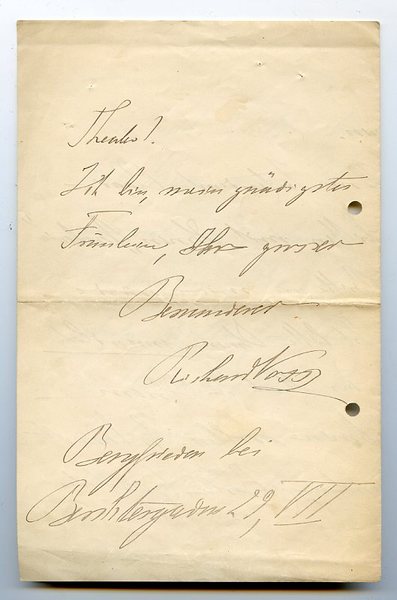 Theater!
Ich bin, mein gnädigstes
Fräulein, Ihr grosser
Bewunderer
Richard Voss
Bergfrieden bei
Berchtesgaden 29, VII